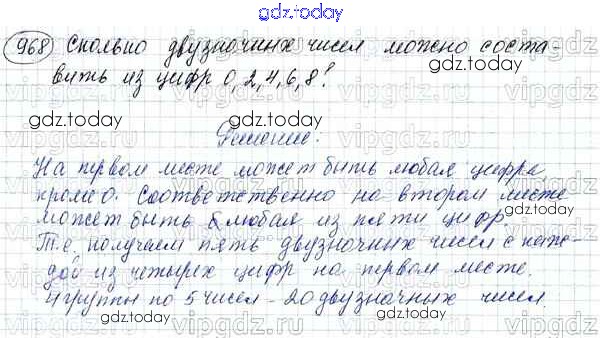 gdz.today
968 Сколько двузначных чисел можно соста-
вить из цифр 0, 2, 4, 6, 8?
gdz.today gdz.today
Решение:
vipgdz.ru vipgdz.ru
На первом месте может быть любая цифра,
gdz.today
кроме 0. Соответственно на втором месте
может быть любая из пяти цифр.
gdz.today
Т.е. получаем пять двузначных чисел с каж-
дой из четырех цифр на первом месте.
4 группы по 5 чисел - 20 двузначных чисел.
gdz.today gdz.today
vipgdz.ru vipgdz.ru